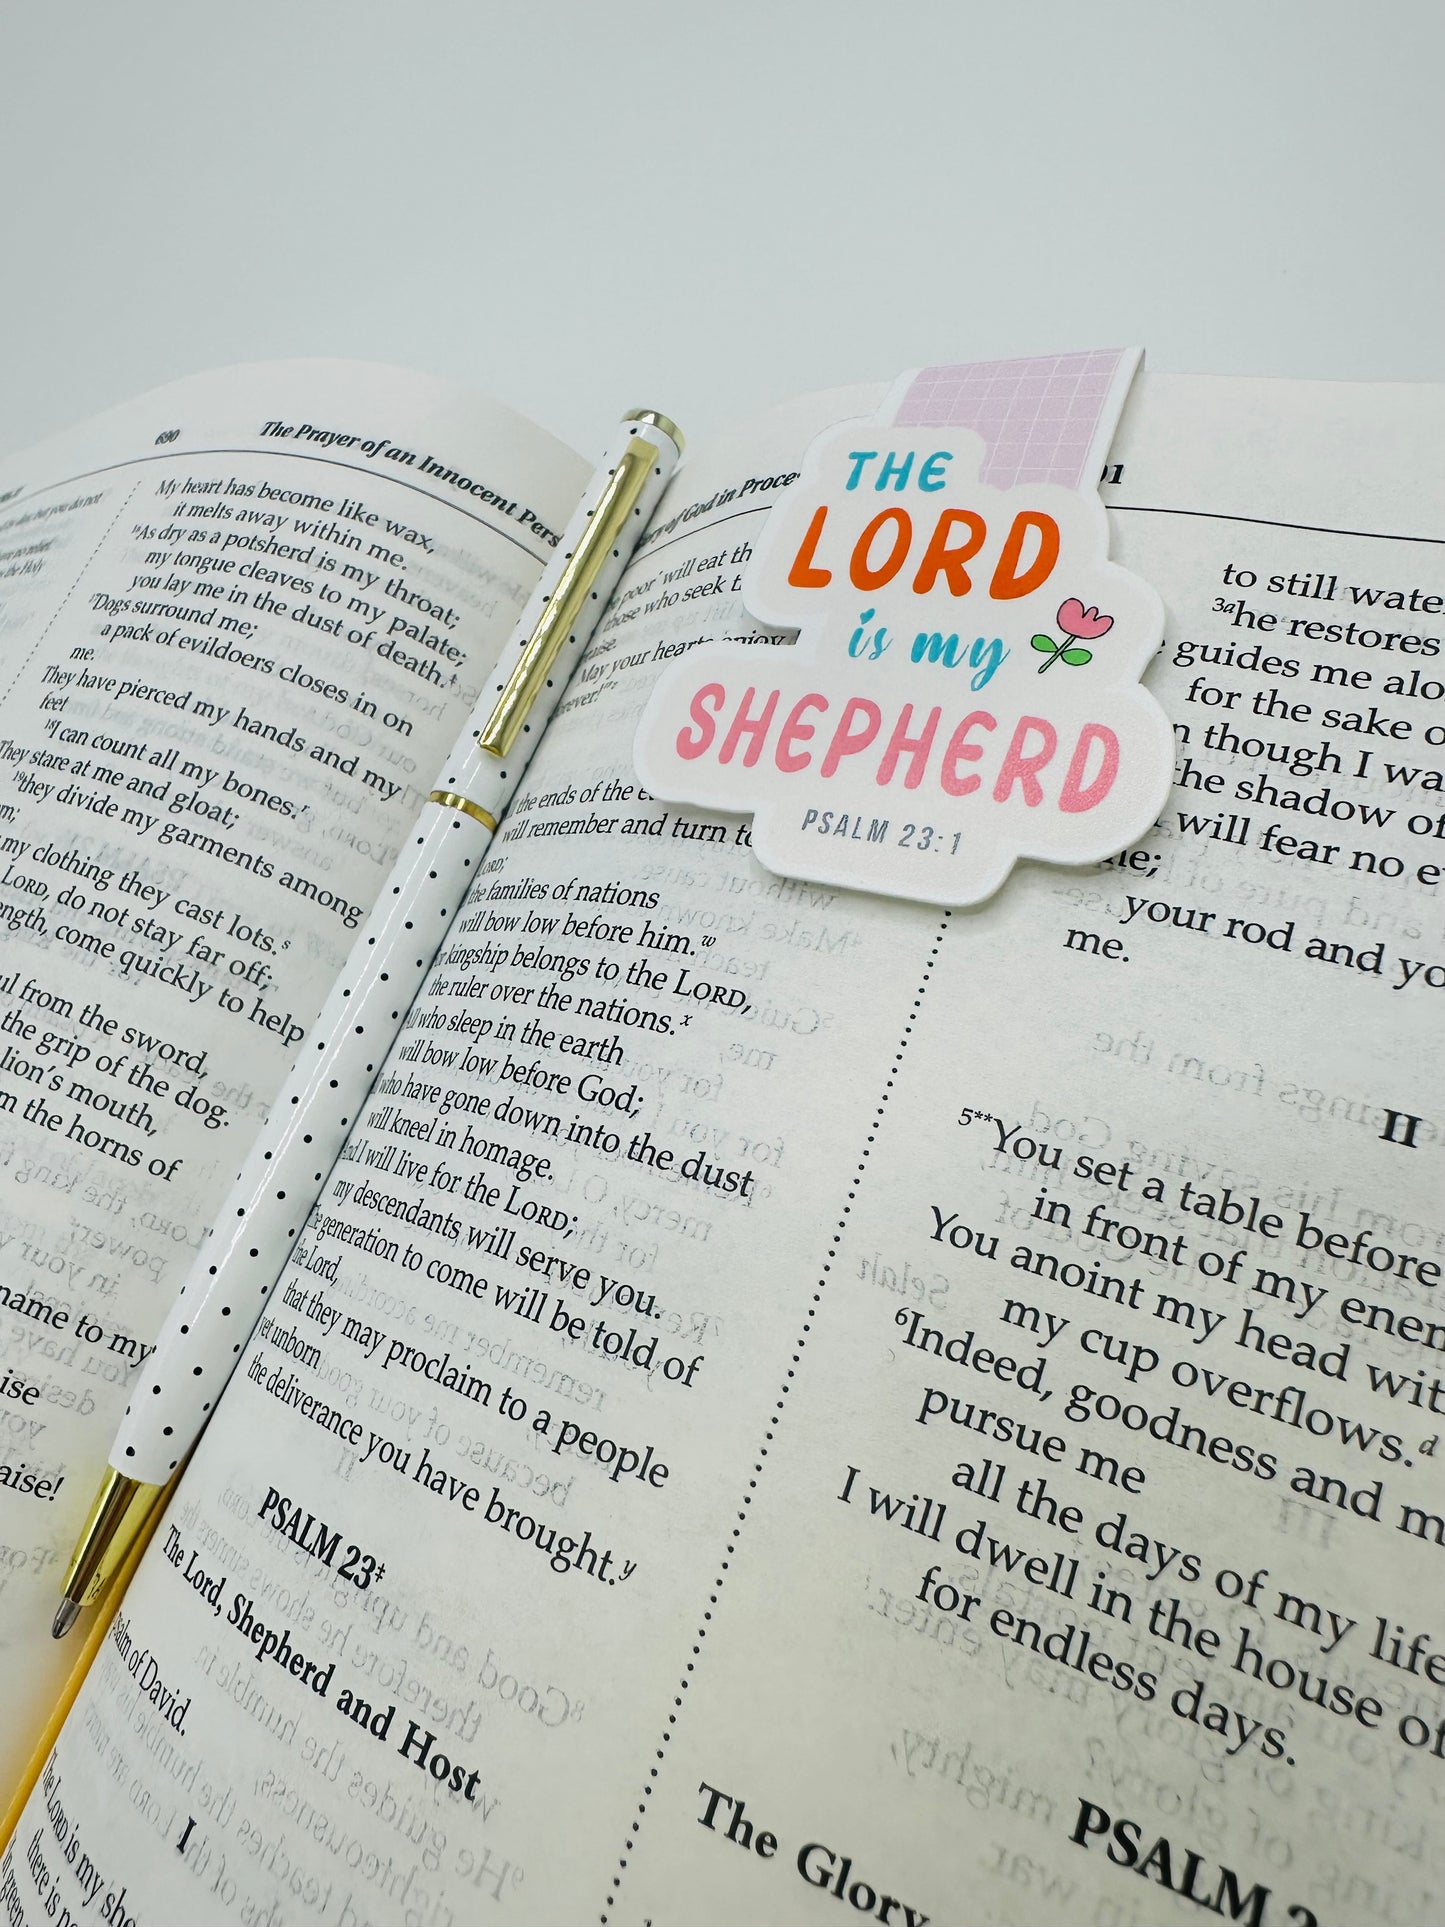 690
The Prayer of an Innocent Pers
My heart has become like wax,
it melts away within me.
As dry as a potsherd is my throat;
my tongue cleaves to my palate;
you lay me in the dust of death.
Dogs surround me;
a pack of evildoers closes in on
me.
They have pierced my hands and my
feet
18I can count all my bones.r
They stare at me and gloat;
19they divide my garments among
my clothing they cast lots.s
LORD, do not stay far off;
come quickly to help
from the sword,
the grip of the dog.
lion's mouth,
the horns of
name to my
of God in
will eat
who seek
May your hearts enjoy
the ends of the
will remember and turn
LORD;
the families of nations
will bow low before him.w
kingship belongs to the LORD,
the ruler over the nations.x
who sleep in the earth
will bow low before God;
who have gone down into the dust
will kneel in homage.
And I will live for the LORD;
my descendants will serve you.
The generation to come will be told of
the Lord,
that they may proclaim to a people
yet unborn
the deliverance you have brought.y
PSALM 23‡
The Lord, Shepherd and Host
psalm of David.
I
The LORD is my
there is
THE
LORD
is my
SHEPHERD
PSALM 23:1
to still
3ahe restores
guides me
for the sake
though I
the shadow of
will fear no
me;
your rod and
me.
II
5**You set a table before
in front of my
You anoint my head
my cup overflows.d
6Indeed, goodness and
pursue me
all the days of my life
I will dwell in the house of
for endless days.
PSALM
The Glory